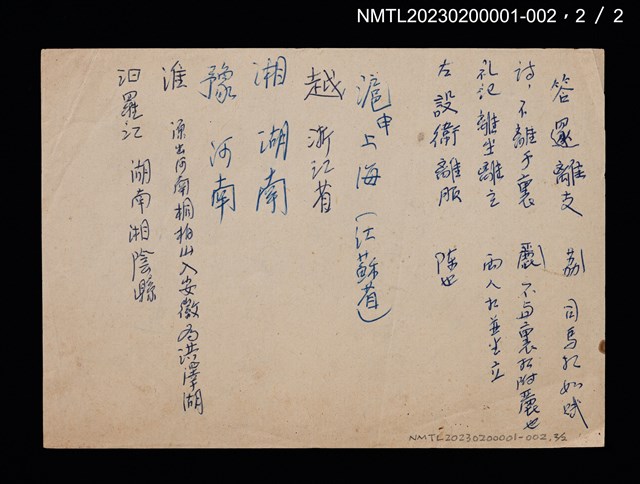 NMTL20230200001-002，2 / 2
答遝離支 荔 司馬相如賦
詩，不離于裏 麗 不與裏相附麗也
礼记離坐離立 兩人相並坐立
左設衛離服 陳也
滬申上海（江蘇省）
越 浙江省
湘 湖南
豫 河南
淮 源出河南桐柏山入安徽為洪澤湖
汨羅江 湖南湘陰縣
NMTL20230200001-002, 2/2